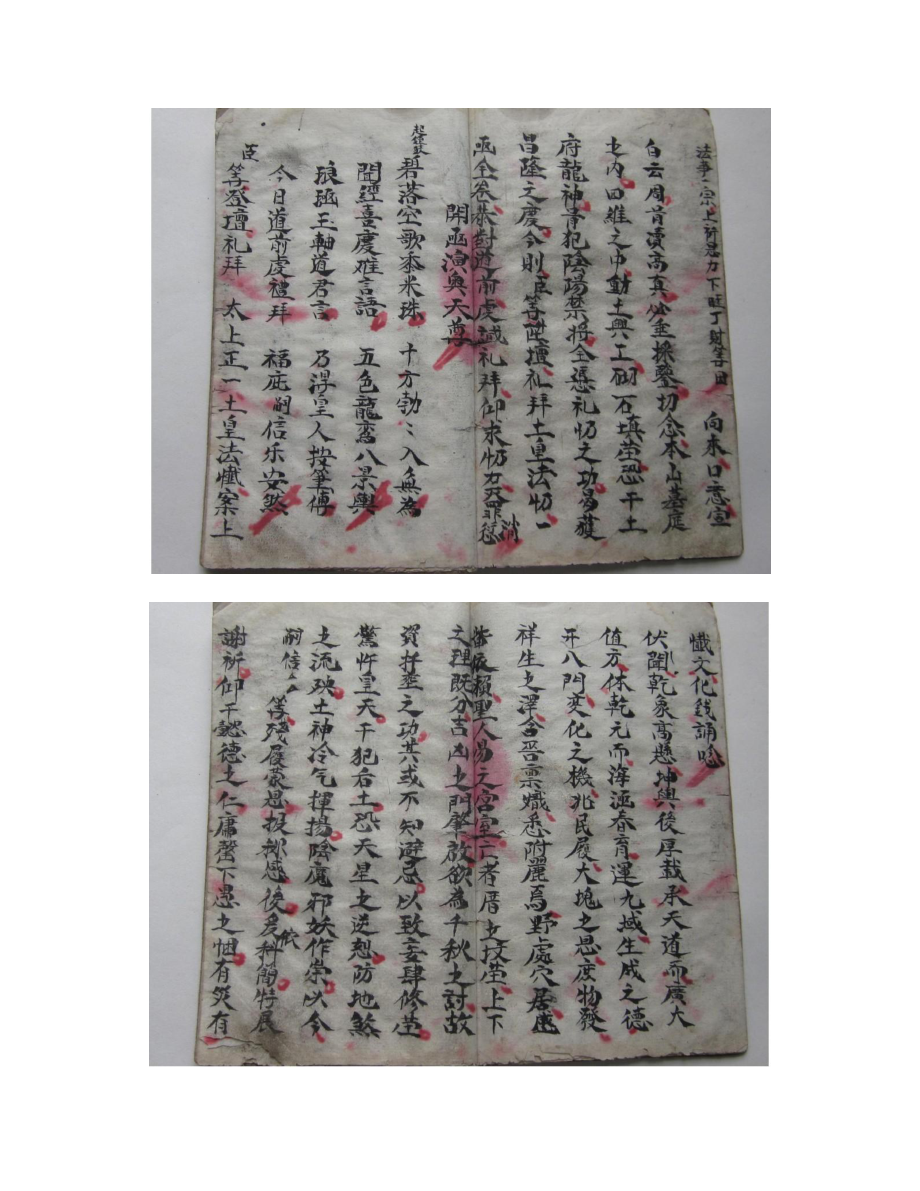 法事一宗上祈恩力下旺丁財等因 向来口意宣
白云周肯凟高真必垂採鑒切念本山墓庭
之内四維之中動土興工砌石填茔恐干土
府龍神骨犯陰陽禁將全憑礼忉之功曷獲
昌隆之慶今則臣等登壇礼拜土皇法忉一
函全卷恭對道前虔誠礼拜仰求忉力灭罪愆消
開函演奥天尊
起經玅
碧落空歌黍米珠 十方勃〻入無為
聞經喜慶难言語 五色龍鸾八景輿
琅函玉軸道君言 乃淂皇人按筆傳
今日道前虔禮拜 福庇嗣信乐安然
臣等登壇礼拜 太上正一土皇法懺案上
懺文化錢誦唸
伏聞乾象高懸坤輿後厚載承天道而廣大
值方体乾元而滓洍春育運九域生成之德
开八門变化之機兆民履大塊之恩庶物發
祥生之澤含吾禀熾悉附麗焉野處穴居
恭依賴聖人易之宮室亡者厝之技茔上下
之理既分吉凶之門肇啟欲為千秋之討故
資抔垄之功其或不知避忌以致妄肆修茔
驚忤皇天干犯后土恐天星之逆剋防地煞
之流殃土神冷气揮揚陰魔邪妖作祟以今
嗣信厶厶等殘屐蒙恩投郝感後爰依科簡特展
謝祈仰干懿德之仁庸罄下愚之悃有災有